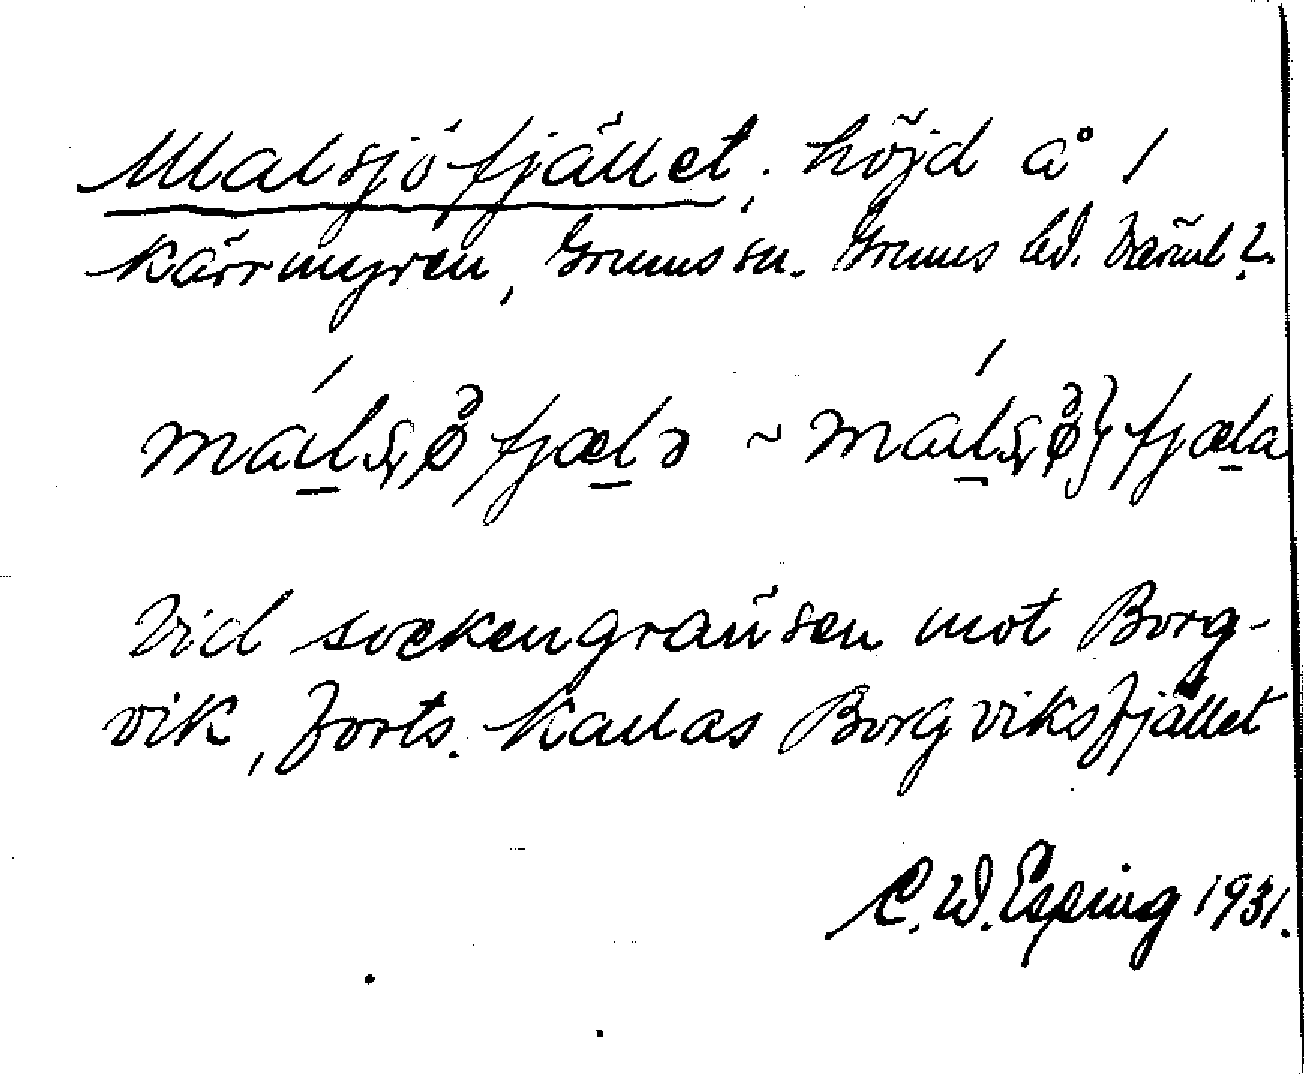 Malsjöfjället, höjd å 1
Kärrmyren, Grums sn. Grums hd. Värml.
Vid sockengränsen mot Borg-
vik, forts. kallas Borgviksfjället
C. W. Esping 1931.